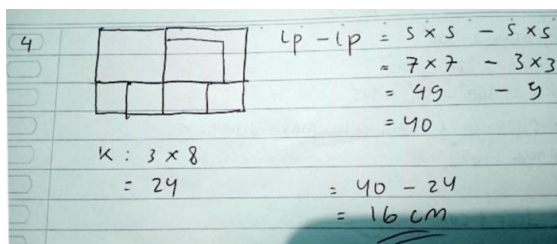 4
Lp - Lp = s x s - s x s
= 7 x 7 - 3 x 3
= 49 - 9
= 40
K : 3 x 8
= 24
= 40 - 24
= 16 cm